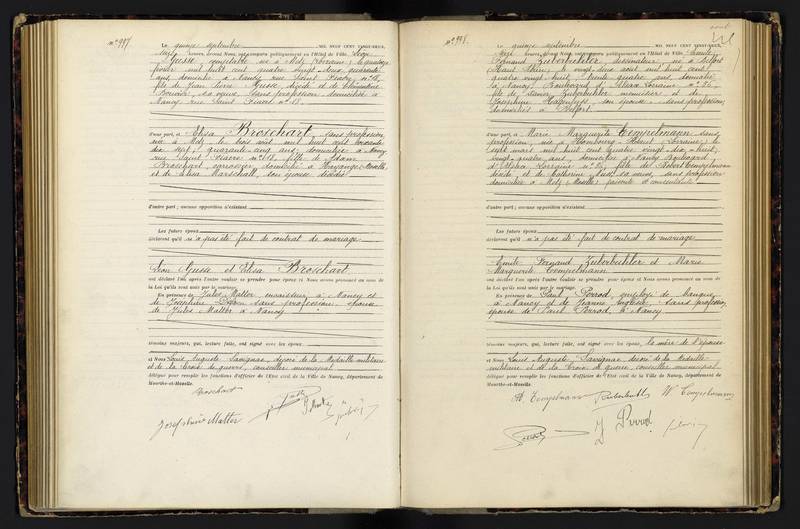 N° 997
Le quinze septembre MIL NEUF CENT VINGT-DEUX,
heures, devant Nous, ont comparu publiquement en l'Hôtel de Ville, Léon
Gusse, comptable, né à Metz (Lorraine) le quatorze
mil huit cent quatre vingt deux, quarante
ans, domicilié à Nancy, rue Saint Fiacre n° 18,
fils de Jean Pierre Gusse, décédé et de Clémentine
sa veuve, sans profession, domiciliée à
Nancy, rue Saint Fiacre n° 18.
d'une part, et Elisa Broschart, sans profession,
née à Metz, le trois août mil huit cent soixante
dix sept, quarante cinq ans, domiciliée à Nancy,
rue Saint Fiacre n° 18, fille de Adam
Broschart, domicilié à Hayange (Moselle)
et de Marschall, son épouse décédée
d'autre part ; aucune opposition n'existant
Les futurs époux
déclarent qu'il n'a pas été fait de contrat de mariage
Léon Gusse et Elisa Broschart
ont déclaré l'un après l'autre vouloir se prendre pour époux et Nous avons prononcé au nom de
la Loi qu'ils sont unis par le mariage.
En présence de Jules Matter à Nancy et
de Joséphine sans profession, épouse
de Jules Matter à Nancy
témoins majeurs, qui, lecture faite, ont signé avec les époux
et Nous Louis Auguste Savignac, décoré de la Médaille militaire
et de la Croix de guerre, conseiller municipal
délégué pour remplir les fonctions d'officier de l'Etat civil de la Ville de Nancy, département de
Meurthe-et-Moselle.
Broschart
Joséphine Matter
N° 998
Le quinze septembre MIL NEUF CENT VINGT-DEUX,
heures, devant Nous, ont comparu publiquement en l'Hôtel de Ville, Emile
Fernand Zuberbuhler, dessinateur, né à Belfort
(Haut Rhin) le vingt deux août mil huit cent
quatre vingt huit, trente quatre ans, domicilié
à Nancy, Boulevard d'Alsace Lorraine n° 24,
fils de Zuberbuhler, menuisier et de
Joséphine son épouse, sans profession,
domiciliés à Belfort
d'une part, et Marie Marguerite Tempelmann, sans
profession, née à Hombourg (Lorraine) le
sept mars mil huit cent quatre vingt dix huit,
vingt quatre ans, domiciliée à Nancy, Boulevard
d'Alsace Lorraine n° 24, fille de Robert Tempelmann
décédé, et de Catherine sa veuve, sans profession
domiciliée à Metz (Moselle) présente et consentante
d'autre part ; aucune opposition n'existant
Les futurs époux
déclarent qu'il n'a pas été fait de contrat de mariage
Emile Fernand Zuberbuhler et Marie
Marguerite Tempelmann
ont déclaré l'un après l'autre vouloir se prendre pour époux et Nous avons prononcé au nom de
la Loi qu'ils sont unis par le mariage.
En présence de Paul Perrod, employé de banque,
à Nancy et de Jeanne sans profession,
épouse de Paul Perrod, à Nancy
témoins majeurs, qui, lecture faite, ont signé avec les époux, la mère de l'épouse
et Nous Louis Auguste Savignac, décoré de la Médaille
militaire et de la Croix de guerre, conseiller municipal
délégué pour remplir les fonctions d'officier de l'Etat civil de la Ville de Nancy, département de
Meurthe-et-Moselle.
M Tempelmann Zuberbuhler W Tempelmann
Perrod J Perrod